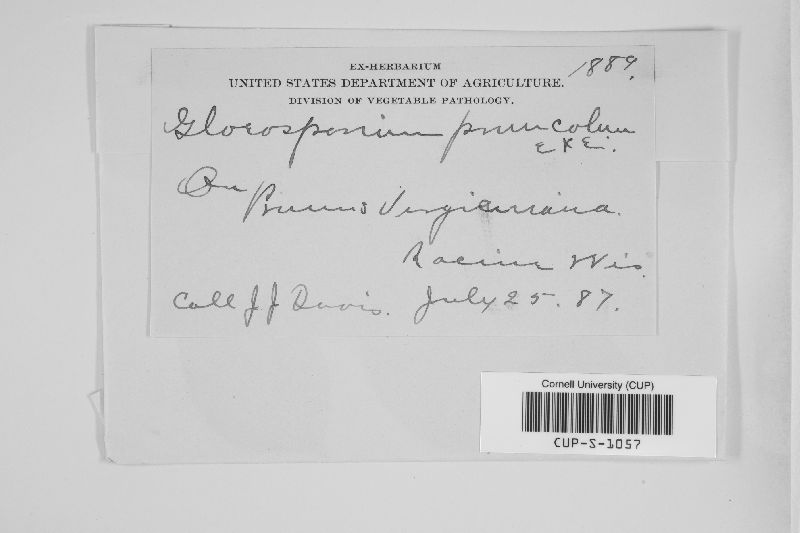 EX-HERBARIUM
UNITED STATES DEPARTMENT OF AGRICULTURE. 1889.
DIVISION OF VEGETABLE PATHOLOGY.
Gloeosporium prunicolum
E & E.
On Prunus Virginiana.
Racine Wis.
Coll J J Davis. July 25. 87.
Cornell University (CUP)
CUP-S-1057